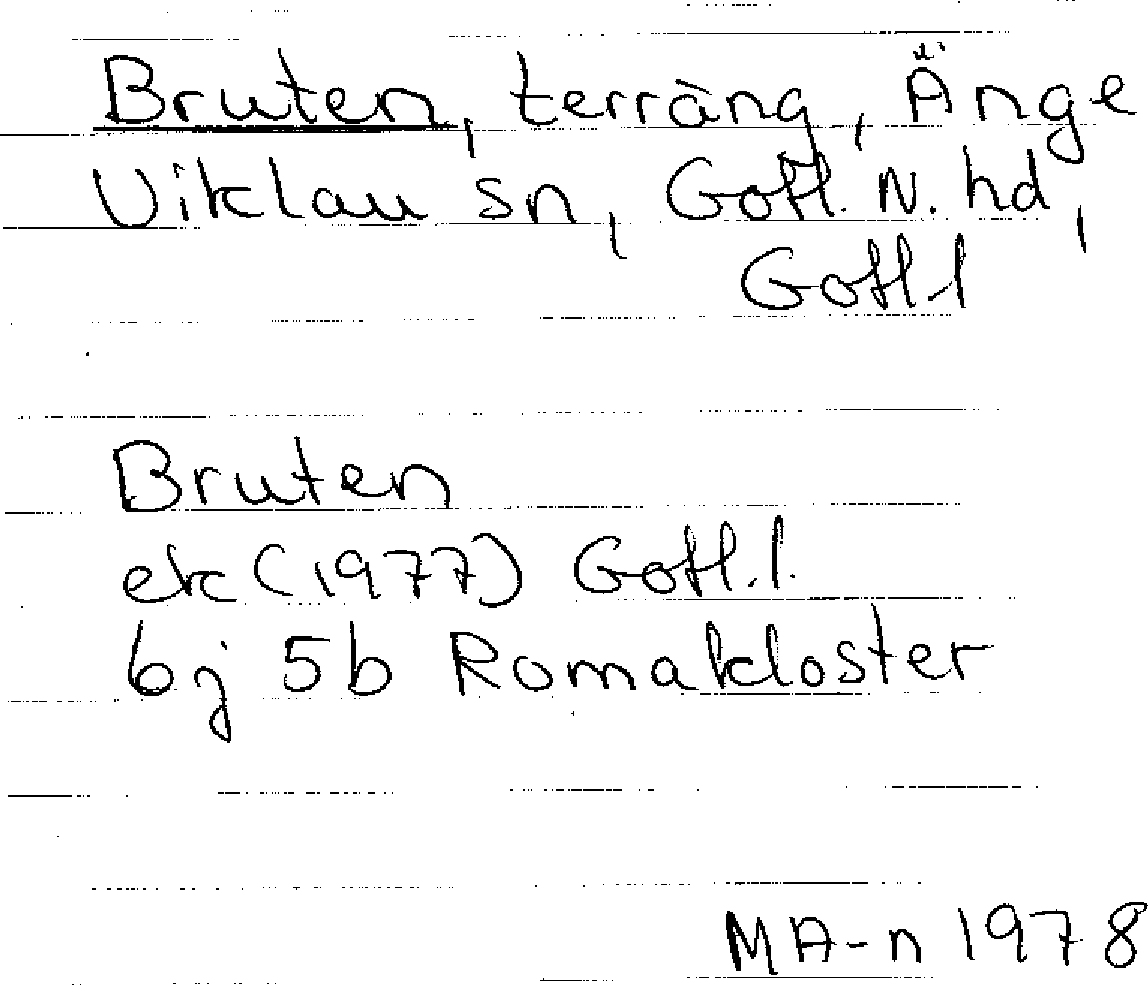 Bruten, terräng, Änge
Viklau sn, Gotl. N. hd,
Gotl. l
Bruten
ek (1977) Gotl. l.
6j 5b Romakloster
MA-n 1978